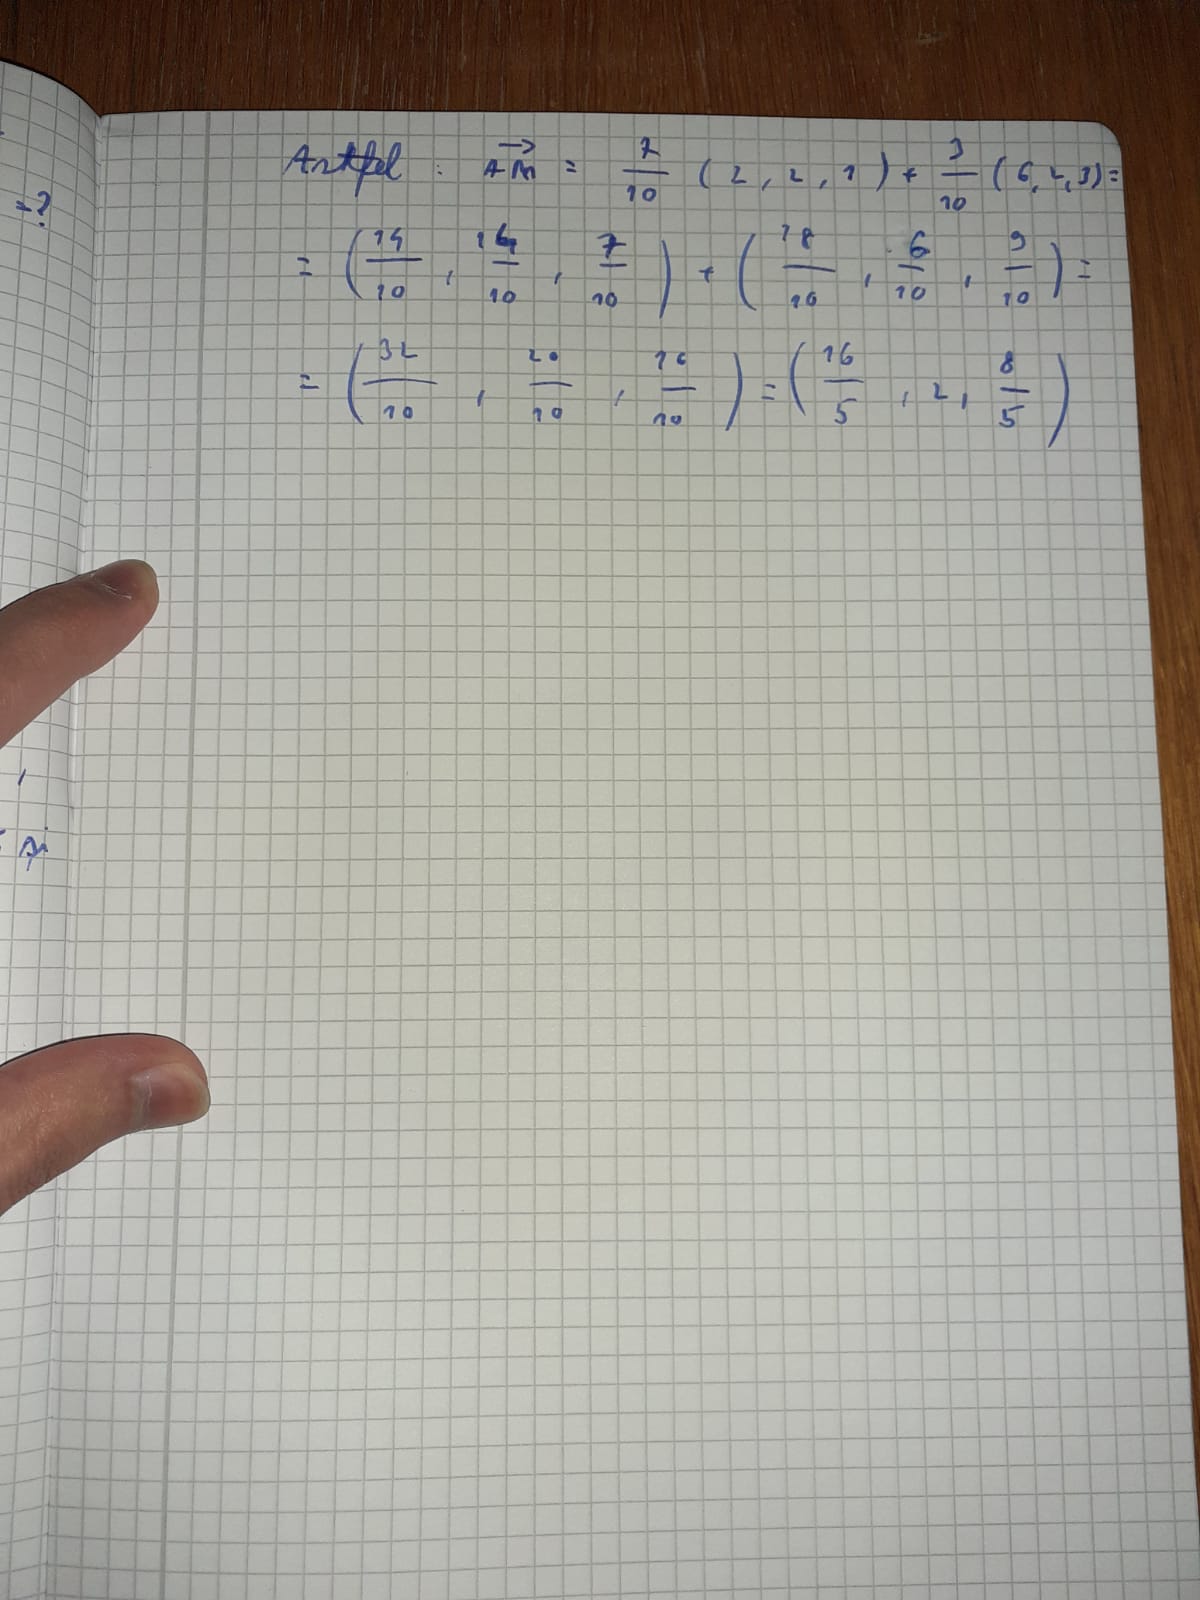 =?
Astfel : AM⃗ = 7/10 (2, 2, 1) + 3/10 (6, 2, 3) =
= (14/10, 14/10, 7/10) + (18/10, 6/10, 9/10) =
= (32/10, 20/10, 16/10) = (16/5, 2, 8/5)